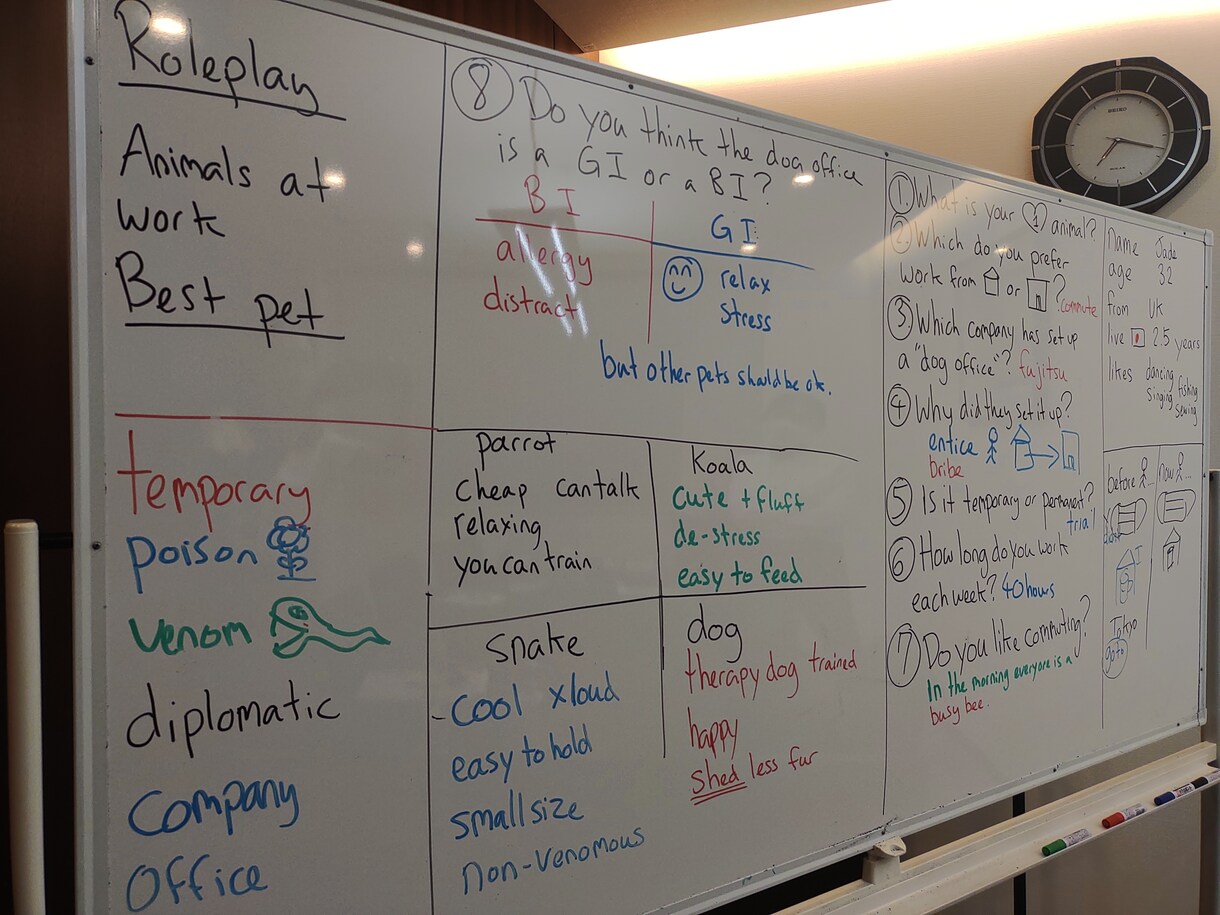 Roleplay
Animals at
work
Best pet
temporary
poison
venom
diplomatic
Company
Office
8 Do you think the dog office
is a GI or a BI?
BI
allergy
distract
GI
relax
stress
but other pets should be ok.
parrot
cheap can talk
relaxing
you can train
Koala
cute + fluff
de-stress
easy to feed
snake
-cool x loud
easy to hold
small size
non-venomous
dog
therapy dog trained
happy
shed less fur
1 What is your 1 animal?
2 Which do you prefer
work from or ? commute
3 Which company has set up
a "dog office"? fujitsu
4 Why did they set it up?
entice
bribe
5 Is it temporary or permanent?
trial
6 How long do you work
each week? 40 hours
7 Do you like commuting?
In the morning everyone is a
busy bee.
Name Jade
age 32
from UK
live 2.5 years
likes dancing
singing fishing
sewing
before ...
now ...
Tokyo
go to